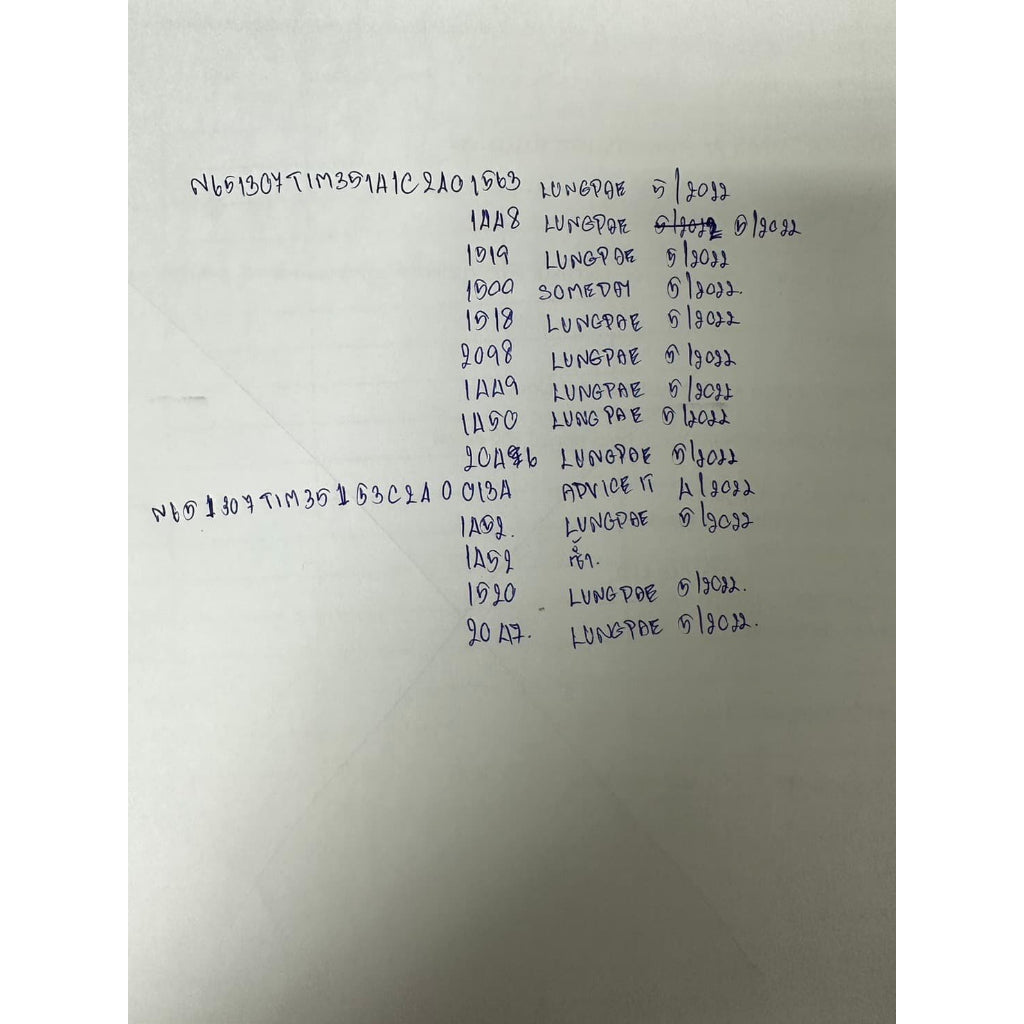 N651307T1M35141C2401563 LUNGPAE 5/2022
1448 LUNGPAE 5/2022 5/2022
1519 LUNGPAE 5/2022
1500 SOMEDAY 5/2022.
1518 LUNGPAE 5/2022
2098 LUNGPAE 5/2022
1449 LUNGPAE 5/2022
1450 LUNGPAE 5/2022
2046 LUNGPAE 5/2022
N651307T1M35153C2400134 ADVICE IT 4/2022
1452. LUNGPAE 5/2022
1452 ซ้ำ.
1520 LUNGPAE 5/2022.
2047. LUNGPAE 5/2022.